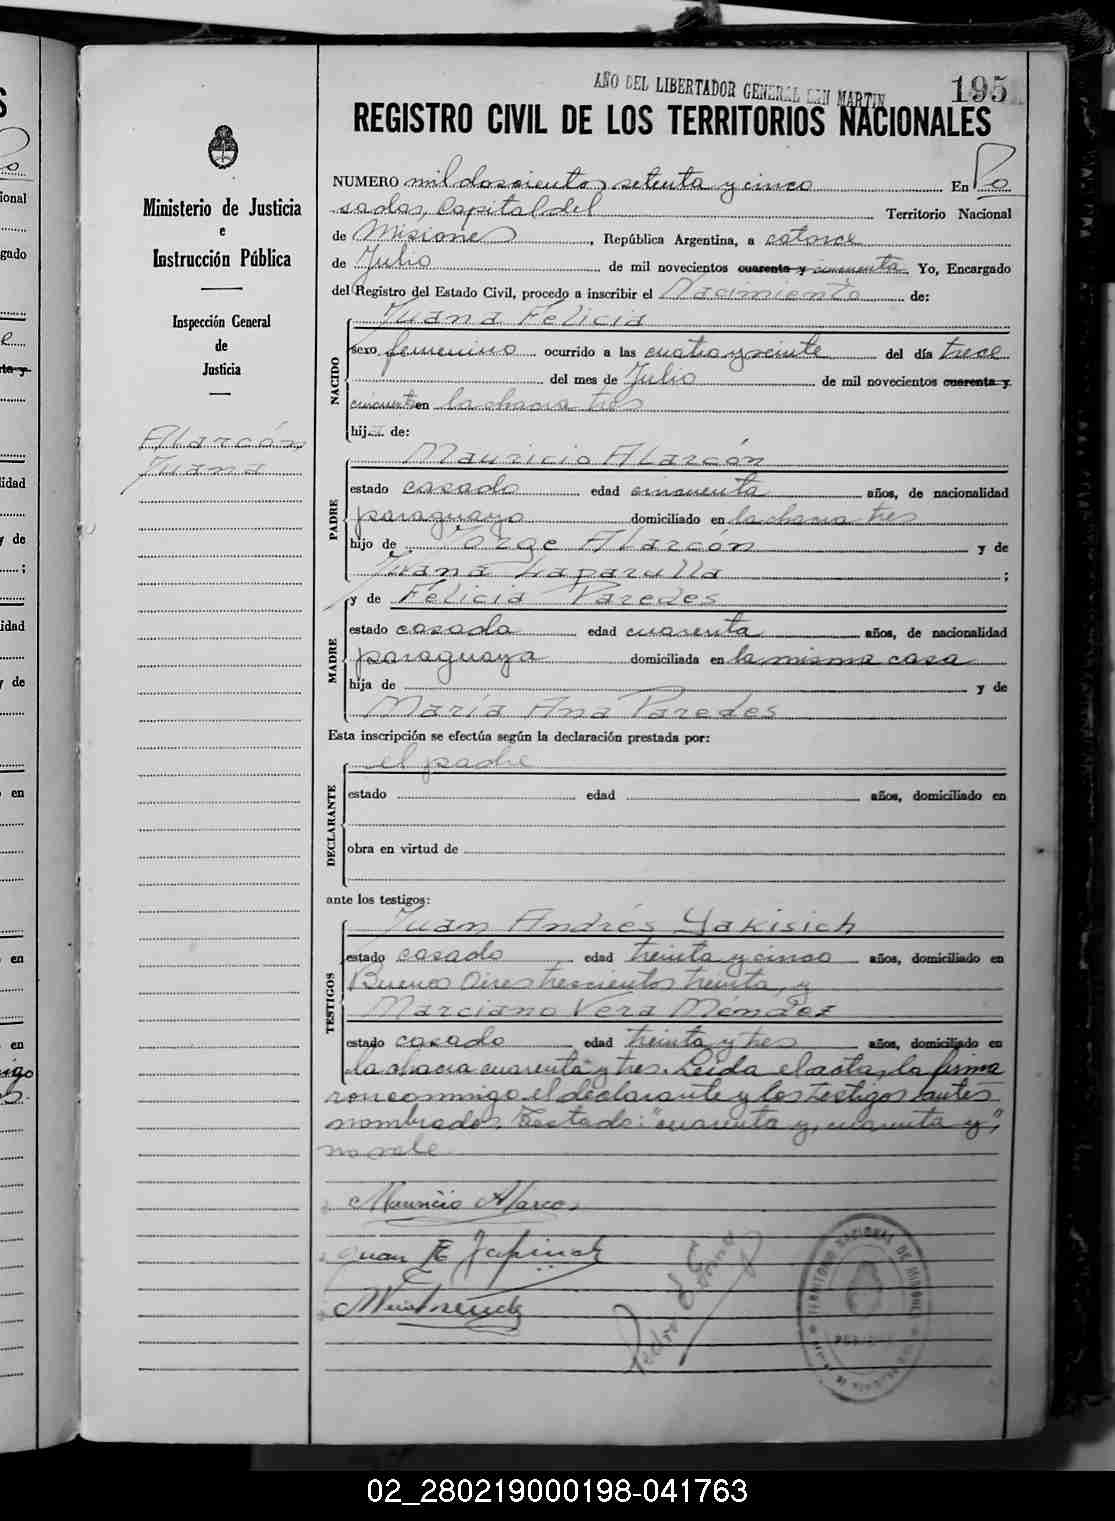 AÑO DEL LIBERTADOR GENERAL SAN MARTIN
195
REGISTRO CIVIL DE LOS TERRITORIOS NACIONALES
Ministerio de Justicia
e
Instrucción Pública
Inspección General
de
Justicia
Alarcón,
Juana
NUMERO mil doscientos setenta y cinco En Po
sadas, Capital del Territorio Nacional
de Misiones, República Argentina, a catorce
de Julio de mil novecientos cuarenta y cincuenta Yo, Encargado
del Registro del Estado Civil, procedo a inscribir el Nacimiento de:
NACIDO
Juana Felicia
sexo femenino ocurrido a las cuatro y veinte del día trece
del mes de Julio de mil novecientos cuarenta y
cincuenta en la chacra tres
hija de:
PADRE
Mauricio Alarcón
estado casado edad cincuenta años, de nacionalidad
paraguayo domiciliado en la chacra tres
hijo de Jorge Alarcón y de
Juana ;
MADRE
y de Felicia Paredes
estado casada edad cuarenta años, de nacionalidad
paraguaya domiciliada en la misma casa
hija de y de
María Ana Paredes
Esta inscripción se efectúa según la declaración prestada por:
DECLARANTE
el padre
estado edad años, domiciliado en
obra en virtud de
ante los testigos:
TESTIGOS
Juan Andrés Yakisich
estado casado edad treinta y cinco años, domiciliado en
Buenos Aires trescientos treinta, y
Marciano Vera Méndez
estado casado edad treinta y tres años, domiciliado en
la chacra cuarenta y tres. Leída el acta, la firma
ron conmigo el declarante y los testigos antes
nombrados. Testado: "cuarenta y, cuarenta y",
no vale
Mauricio Alarcon
Juan
Pedro
TERRITORIO NACIONAL DE MISIONES
02_280219000198-041763